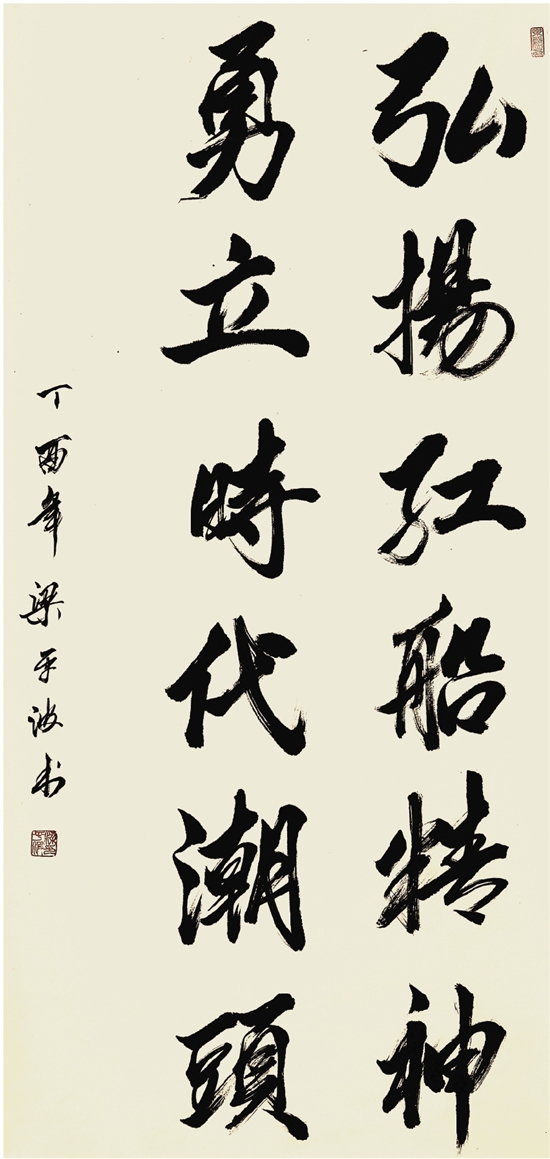 弘揚红船精神
勇立時代潮頭
丁酉年梁平波书